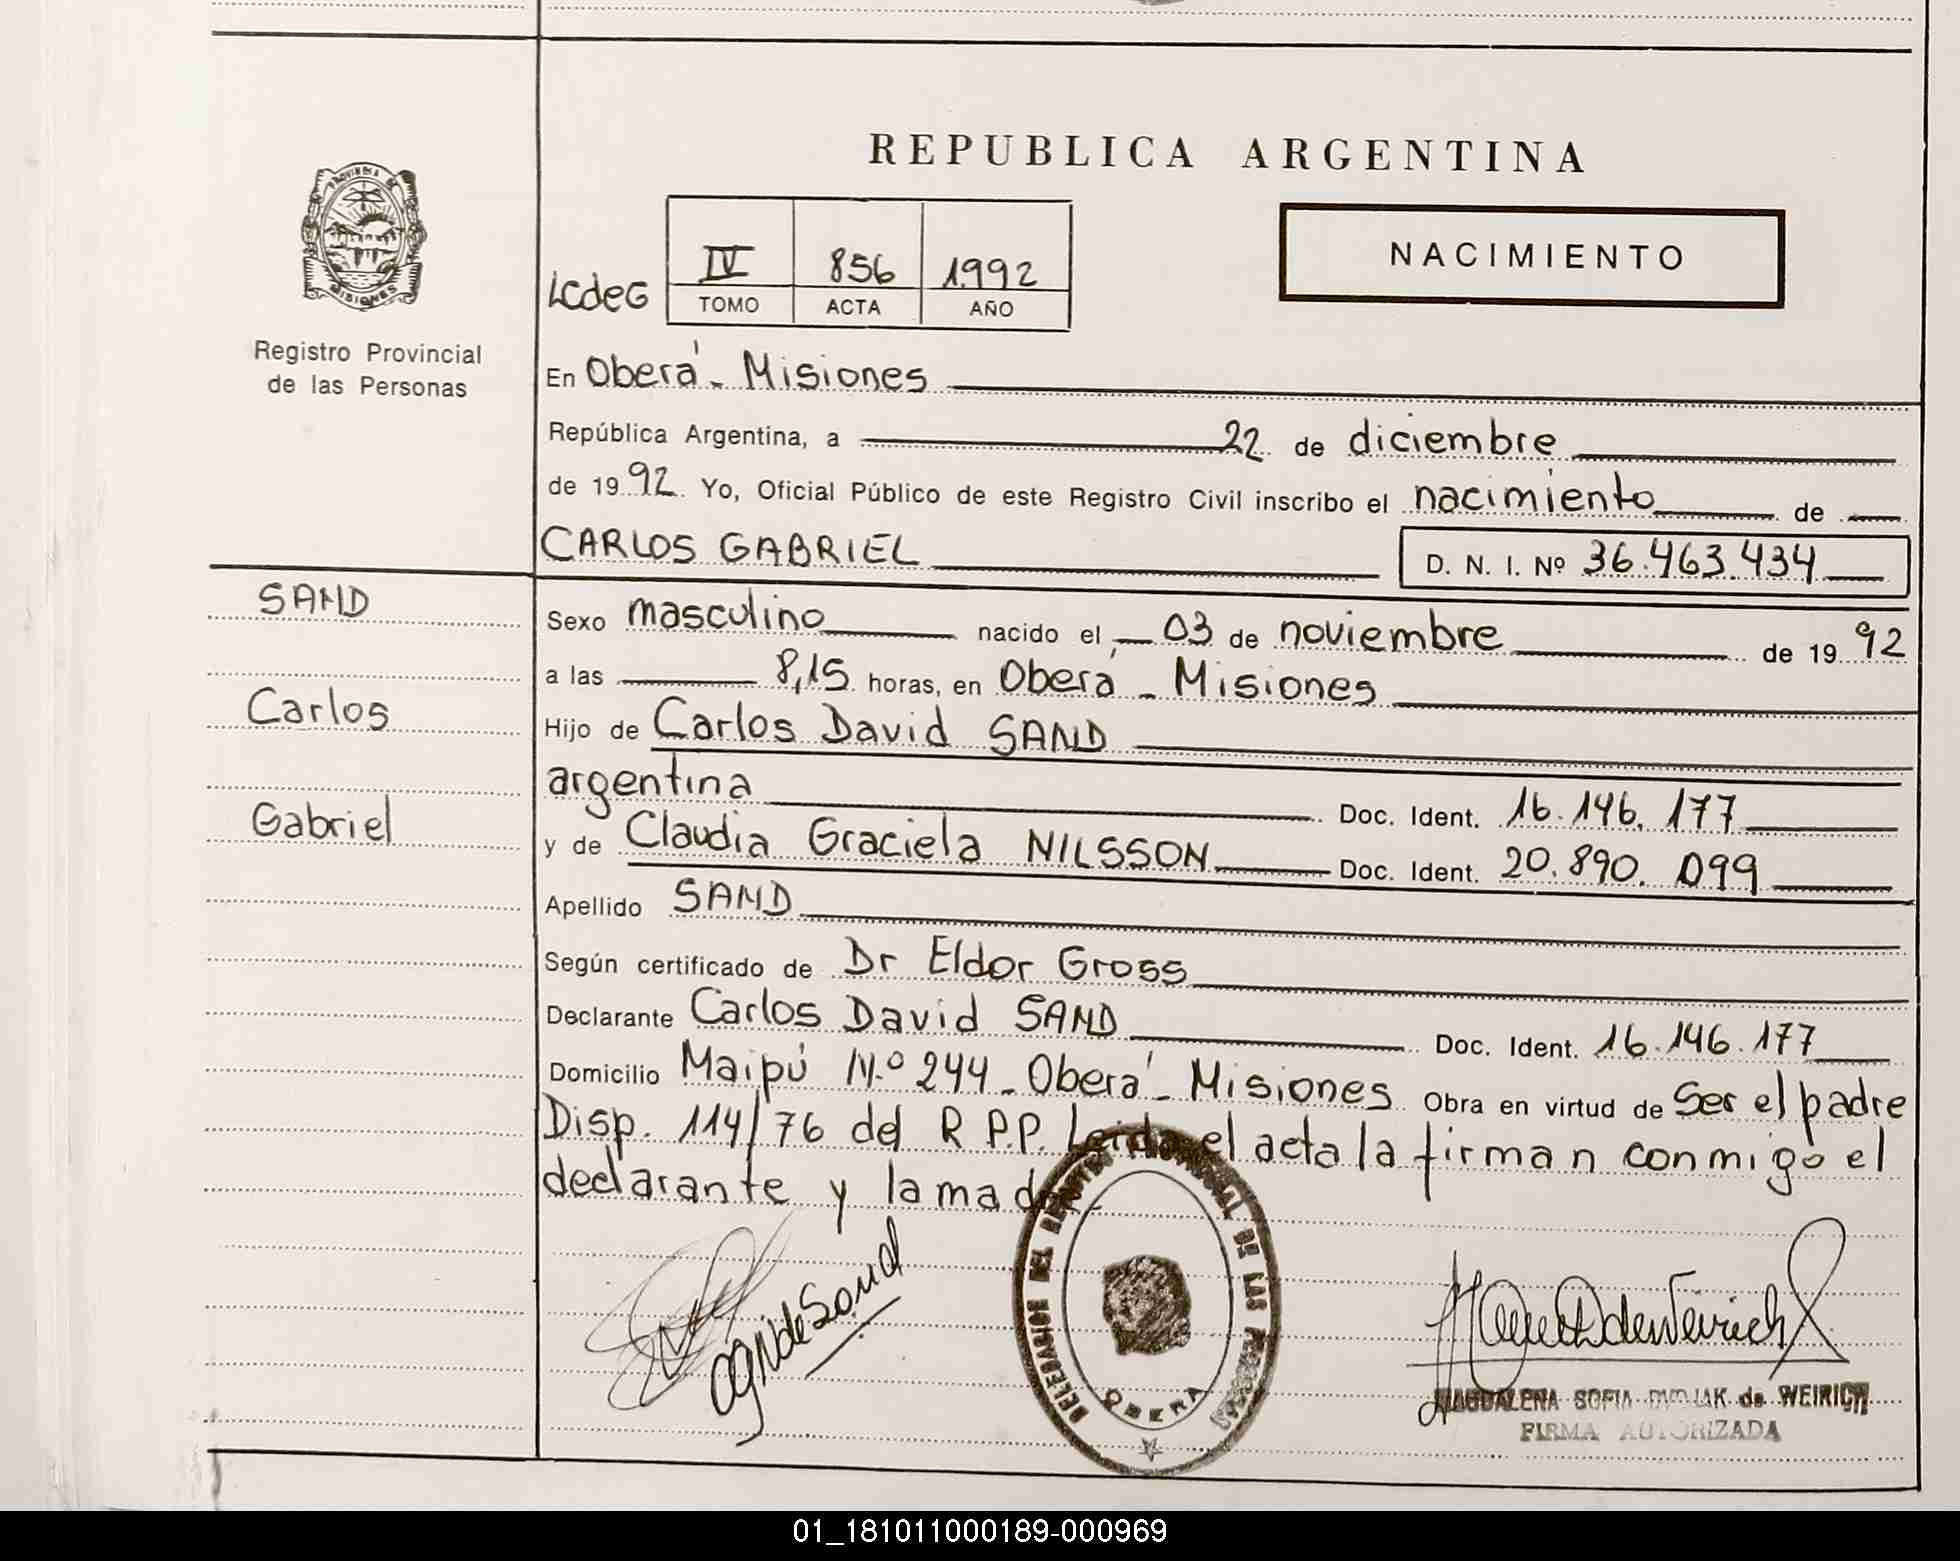 REPUBLICA ARGENTINA
PROVINCIA DE
MISIONES
Registro Provincial
de las Personas
LCdeG
IV 856 1992
TOMO ACTA AÑO
NACIMIENTO
En Oberá - Misiones
República Argentina, a 22 de diciembre
de 1992. Yo, Oficial Público de este Registro Civil inscribo el nacimiento de
CARLOS GABRIEL D. N. I. Nº 36.463.434
SAND
Carlos
Gabriel
Sexo masculino nacido el 03 de noviembre de 1992
a las 8,15 horas, en Oberá - Misiones
Hijo de Carlos David SAND
argentina Doc. Ident. 16.146.177
y de Claudia Graciela NILSSON Doc. Ident. 20.890.099
Apellido SAND
Según certificado de Dr Eldor Gross
Declarante Carlos David SAND Doc. Ident. 16.146.177
Domicilio Maipú N.º 244 - Oberá - Misiones Obra en virtud de Ser el padre
Disp. 114/76 del R P.P. Leida el acta la firman conmigo el
declarante y la madre
CGNdeSand
DELEGACION DEL REGISTRO PROVINCIAL DE LAS PERSONAS
OBERA
MAGDALENA SOFIA de WEIRICH
FIRMA AUTORIZADA
01_181011000189-000969